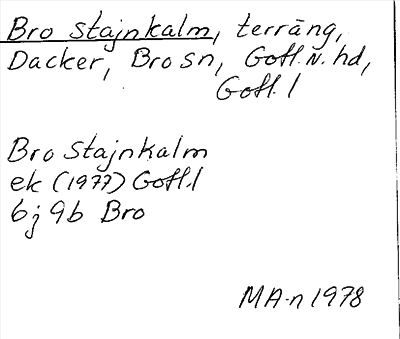 Bro Stajnkalm, terräng,
Dacker, Bro sn, Gotl. N. hd,
Gotl. l
Bro Stajnkalm
ek (1977) Gotl. l
6j 9b Bro
MA-n 1978